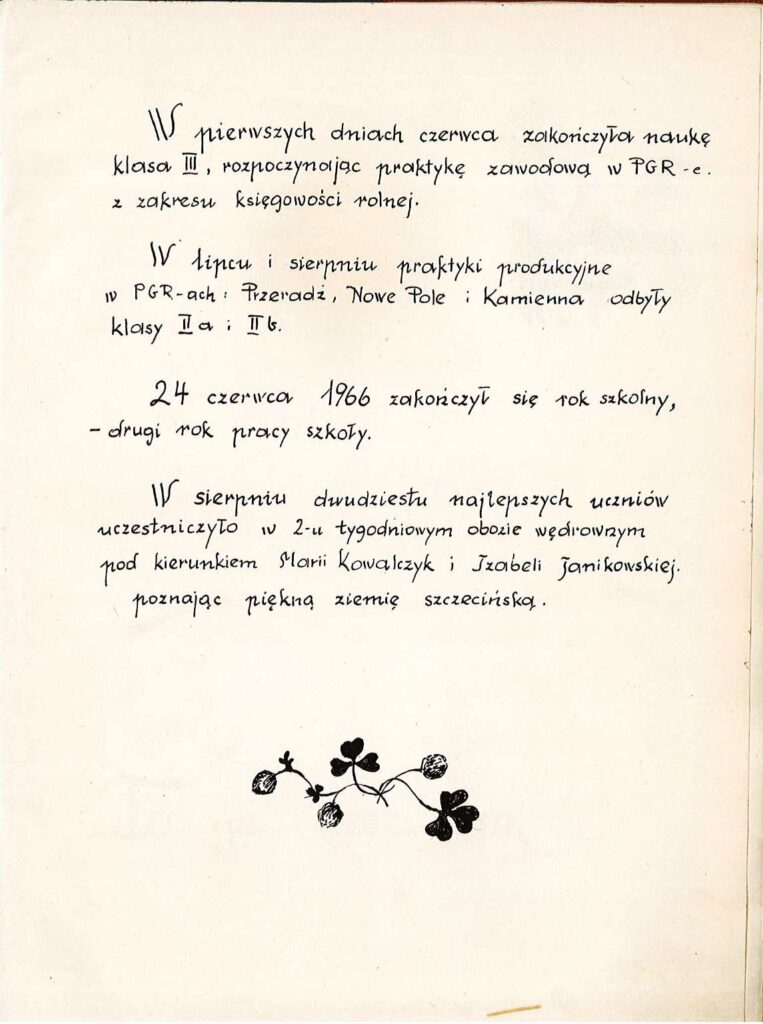 W pierwszych dniach czerwca zakończyła naukę
klasa III, rozpoczynając praktykę zawodową w PGR-e.
z zakresu księgowości rolnej.
W lipcu i sierpniu praktyki produkcyjne
w PGR-ach: Przeradź, Nowe Pole i Kamienna odbyły
klasy IIa i IIb.
24 czerwca 1966 zakończył się rok szkolny,
- drugi rok pracy szkoły.
W sierpniu dwudziestu najlepszych uczniów
uczestniczyło w 2-u tygodniowym obozie wędrownym
pod kierunkiem Marii Kowalczyk i Izabeli Janikowskiej.
poznając piękną ziemię szczecińską.